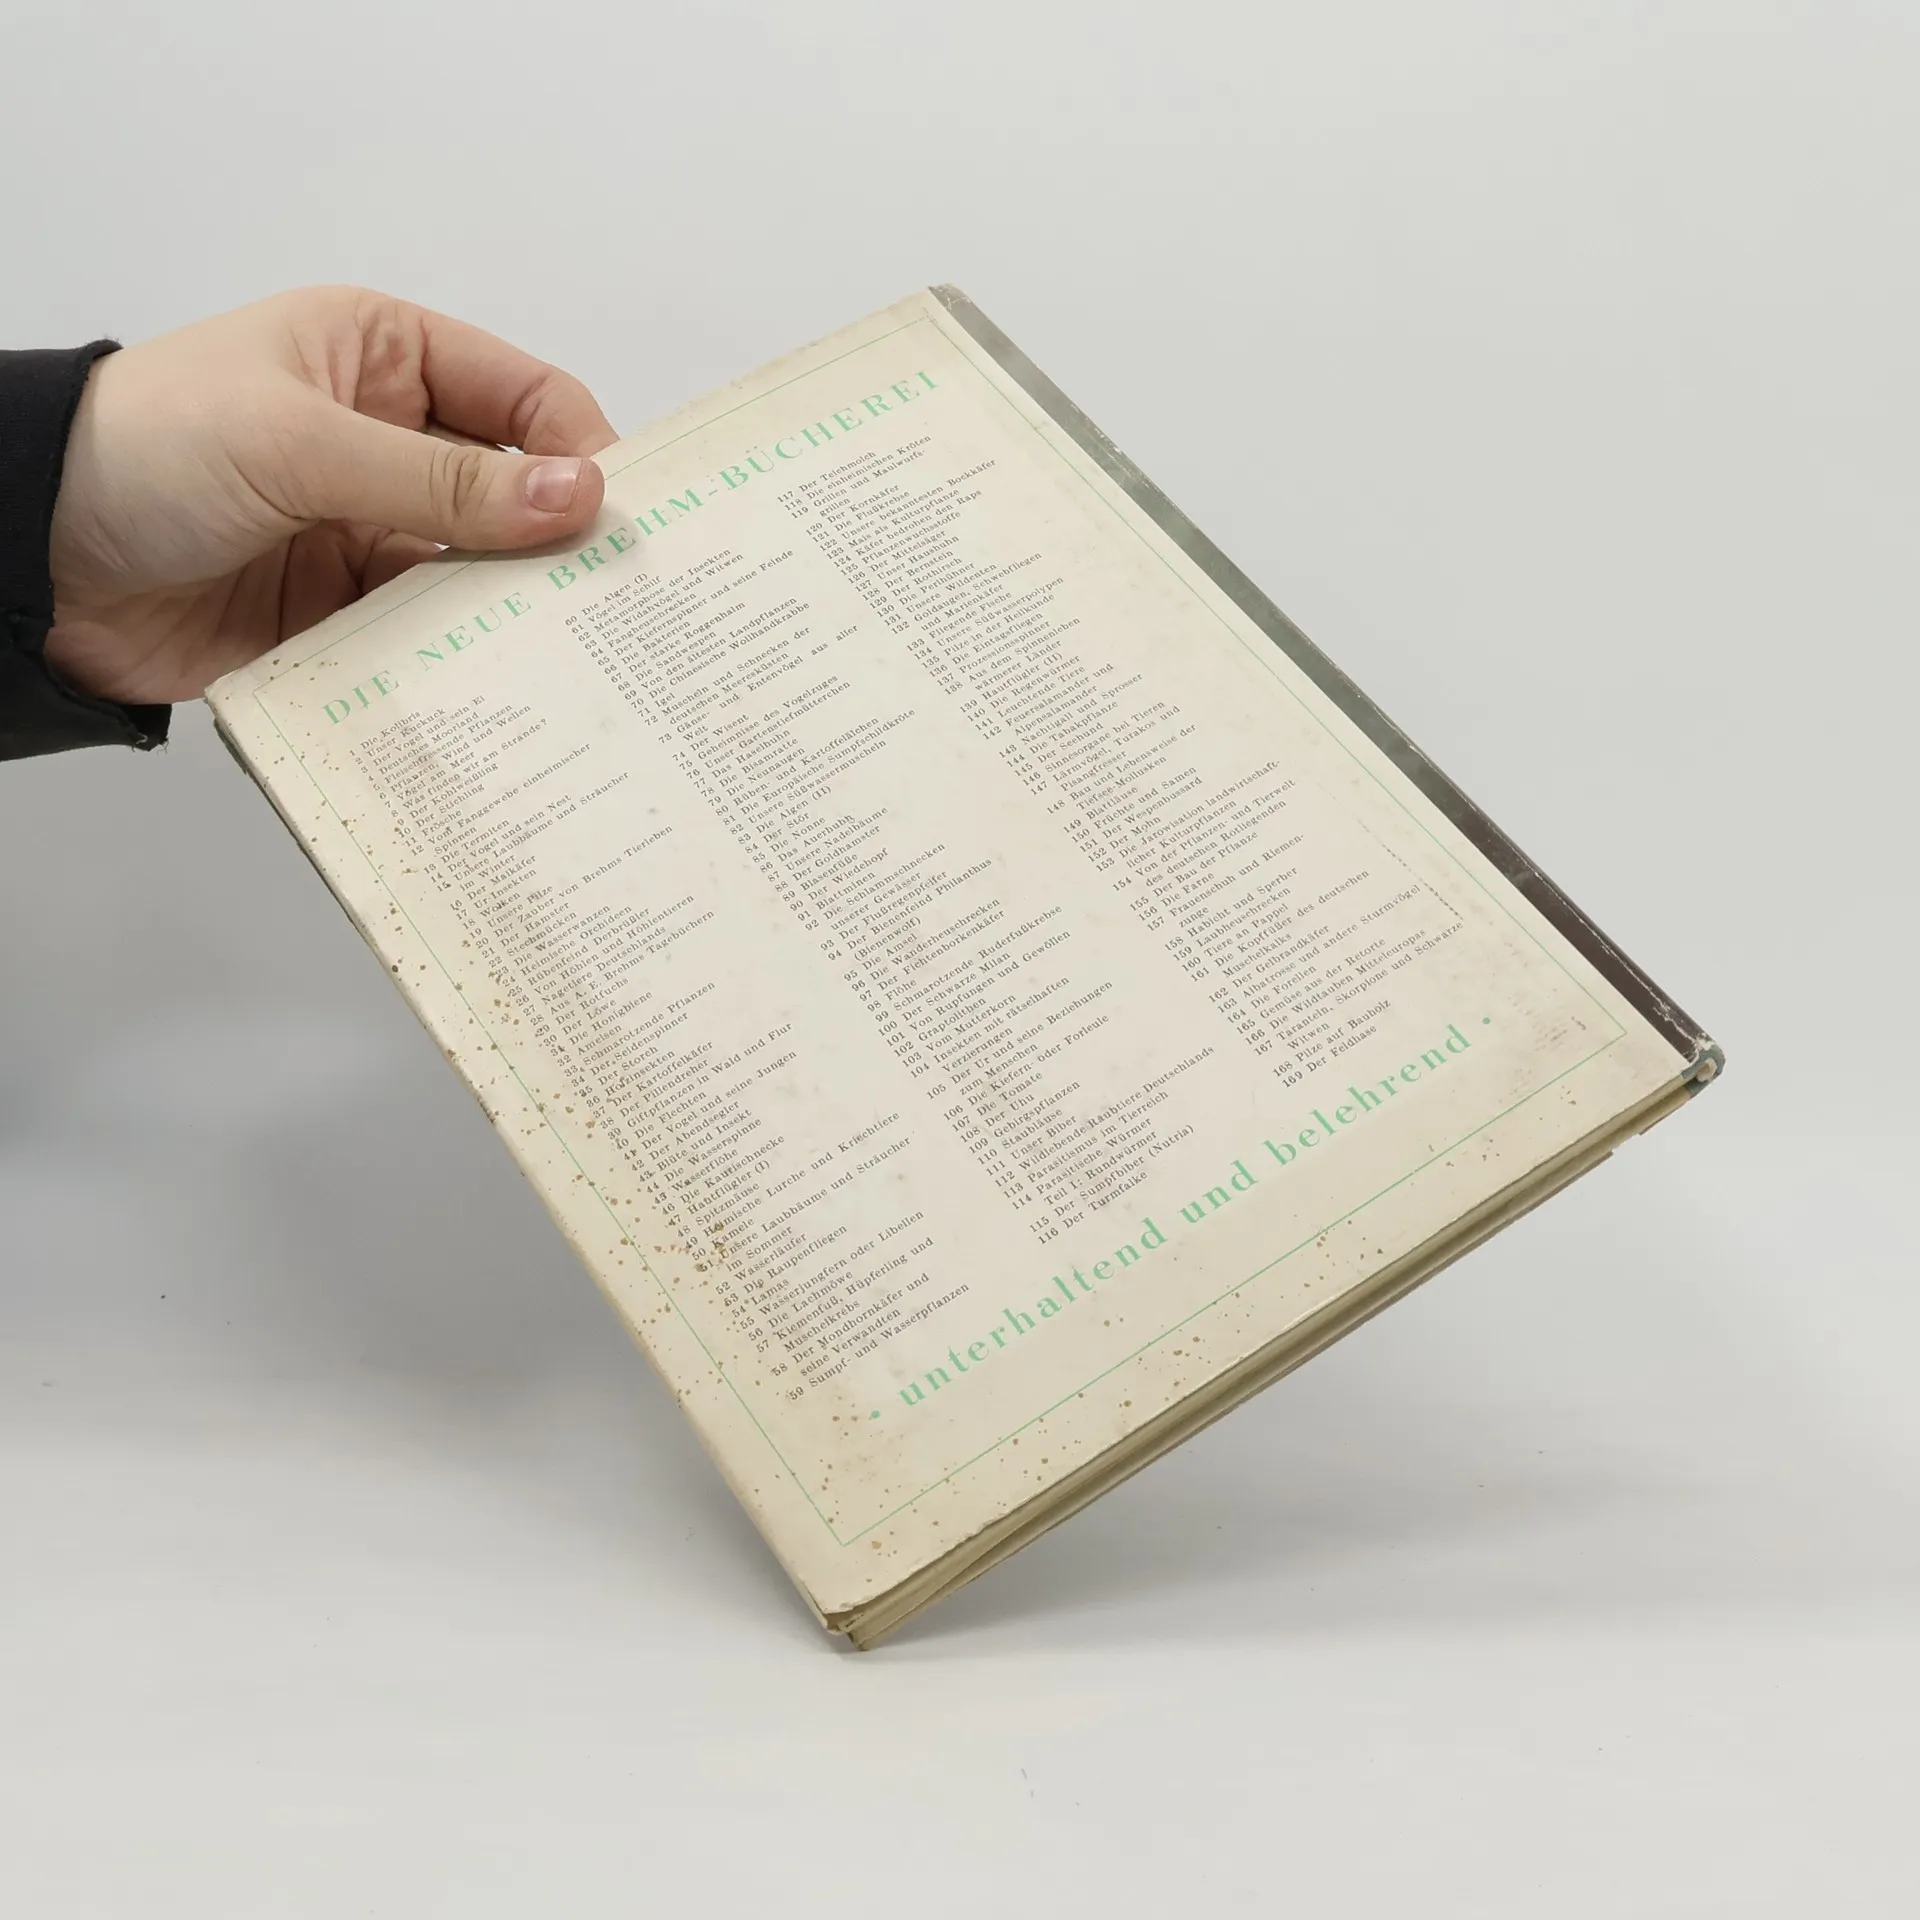 DIE NEUE BREHM-BÜCHEREI
1 Die Kolibris
2 Unser Kuckuck
3 Der Vogel und sein Ei
4 Deutsches Moorland
5 Fleischfressende Pflanzen
6 Pflanzen, Wind und Wellen
7 Vögel am Meer
8 Was finden wir am Strande?
9 Der Kohlweißling
10 Der Stichling
11 Frösche
12 Vom Fanggewebe einheimischer
Spinnen
13 Die Termiten
14 Der Vogel und sein Nest
15 Unsere Laubbäume und Sträucher
im Winter
16 Der Maikäfer
17 Ur-Insekten
18 Wolken
19 Unsere Pilze
20 Der Zauber von Brehms Tierleben
21 Der Hamster
22 Stechmücken
23 Die Wasserwanzen
24 Heimische Orchideen
25 Rübenfeind Derbrüßler
26 Von Höhlen und Höhlentieren
27 Nagetiere Deutschlands
28 Aus A. E. Brehms Tagebüchern
29 Der Rotfuchs
30 Der Löwe
31 Die Honigbiene
32 Ameisen
33 Schmarotzende Pflanzen
34 Der Seidenspinner
35 Der Storch
36 Holzinsekten
37 Der Kartoffelkäfer
38 Der Pillendreher
39 Giftpflanzen in Wald und Flur
40 Die Flechten
41 Der Vogel und seine Jungen
42 Der Abendsegler
43 Blüte und Insekt
44 Die Wasserspinne
45 Wasserflöhe
46 Die Kaurischnecke
47 Hautflügler (I)
48 Spitzmäuse
49 Heimische Lurche und Kriechtiere
50 Kamele
51 Unsere Laubbäume und Sträucher
im Sommer
52 Wasserläufer
53 Die Raupenfliegen
54 Lamas
55 Wasserjungfern oder Libellen
56 Die Lachmöwe
57 Kiemenfuß, Hüpferling und
Muschelkrebs
58 Der Mondhornkäfer und
seine Verwandten
59 Sumpf- und Wasserpflanzen
60 Die Algen (I)
61 Vögel im Schilf
62 Metamorphose der Insekten
63 Die Widahvögel und Witwen
64 Fangheuschrecken
65 Der Kiefernspinner und seine Feinde
66 Die Bakterien
67 Der starke Roggenhalm
68 Die Sandwespen
69 Von den ältesten Landpflanzen
70 Die Chinesische Wollhandkrabbe
71 Igel
72 Muscheln und Schnecken der
deutschen Meeresküsten
73 Gänse- und Entenvögel aus aller
Welt
74 Der Wisent
75 Geheimnisse des Vogelzuges
76 Unser Gartenstiefmütterchen
77 Das Haselhuhn
78 Die Bisamratte
79 Die Neunaugen
80 Rüben- und Kartoffelälchen
81 Die Europäische Sumpfschildkröte
82 Unsere Süßwassermuscheln
83 Die Algen (II)
84 Der Stör
85 Die Nonne
86 Das Auerhuhn
87 Unsere Nadelbäume
88 Der Goldhamster
89 Blasenfüße
90 Der Wiedehopf
91 Blattminen
92 Die Schlammschnecken
unserer Gewässer
93 Der Flußregenpfeifer
94 Der Bienenfeind Philanthus
(Bienenwolf)
95 Die Amsel
96 Die Wanderheuschrecken
97 Der Fichtenborkenkäfer
98 Flöhe
99 Schmarotzende Ruderfußkrebse
100 Der Schwarze Milan
101 Von Rupfungen und Gewöllen
102 Graptolithen
103 Vom Mutterkorn
104 Insekten mit rätselhaften
Verzierungen
105 Der Ur und seine Beziehungen
zum Menschen
106 Die Kiefern- oder Forleule
107 Die Tomate
108 Der Uhu
109 Gebirgspflanzen
110 Staubläuse
111 Unser Biber
112 Wildlebende Raubtiere Deutschlands
113 Parasitismus im Tierreich
114 Parasitische Würmer
Teil I: Rundwürmer
115 Der Sumpfbiber (Nutria)
116 Der Turmfalke
117 Der Teichmolch
118 Die einheimischen Kröten
119 Grillen und Maulwurfs-
grillen
120 Der Kornkäfer
121 Die Flußkrebse
122 Unsere bekanntesten Bockkäfer
123 Mais als Kulturpflanze
124 Käfer bedrohen den Raps
125 Pflanzenwuchsstoffe
126 Der Mittelsäger
127 Unser Haushuhn
128 Der Bernstein
129 Der Rothirsch
130 Die Perlhühner
131 Unsere Wildenten
132 Goldaugen, Schwebfliegen
und Marienkäfer
133 Fliegende Fische
134 Unsere Süßwasserpolypen
135 Pilze in der Heilkunde
136 Die Eintagsfliegen
137 Prozessionsspinner
138 Aus dem Spinnenleben
wärmerer Länder
139 Hautflügler (II)
140 Die Regenwürmer
141 Leuchtende Tiere
142 Feuersalamander und
Alpensalamander
143 Nachtigall und Sprosser
144 Die Tabakpflanze
145 Der Seehund
146 Sinnesorgane bei Tieren
147 Lärmvögel, Turakos und
Pisangfresser
148 Bau und Lebensweise der
Tiefsee-Mollusken
149 Blattläuse
150 Früchte und Samen
151 Der Wespenbussard
152 Der Mohn
153 Die Jarowisation landwirtschaft-
licher Kulturpflanzen
154 Von der Pflanzen- und Tierwelt
des deutschen Rotliegenden
155 Der Bau der Pflanze
156 Die Farne
157 Frauenschuh und Riemen-
zunge
158 Habicht und Sperber
159 Laubheuschrecken
160 Tiere an Pappel
161 Die Kopffüßler des deutschen
Muschelkalks
162 Der Gelbrandkäfer
163 Albatrosse und andere Sturmvögel
164 Die Forellen
165 Gemüse aus der Retorte
166 Die Wildtauben Mitteleuropas
167 Taranteln, Skorpione und Schwarze
Witwen
168 Pilze auf Bauholz
169 Der Feldhase
• unterhaltend und belehrend •